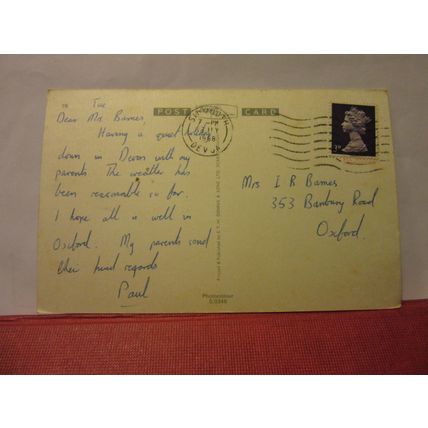 Tue
Dear Mrs Barnes,
Having a quiet holiday
down in Devon with my
parents. The weather has
been reasonable so far.
I hope all is well in
Oxford. My parents send
their kind regards
Paul
POST CARD
7 - PM
1968
DEVON
Mrs I R Barnes
353 Banbury Road
Oxford
Photocolour